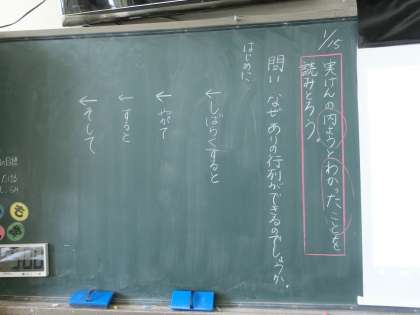 1/15
実けんの内ようとわかったことを
読みとろう。
問い なぜ ありの行列ができるのでしょうか。
はじめに
↓しばらくすると
↓やがて
↓すると
↓そして